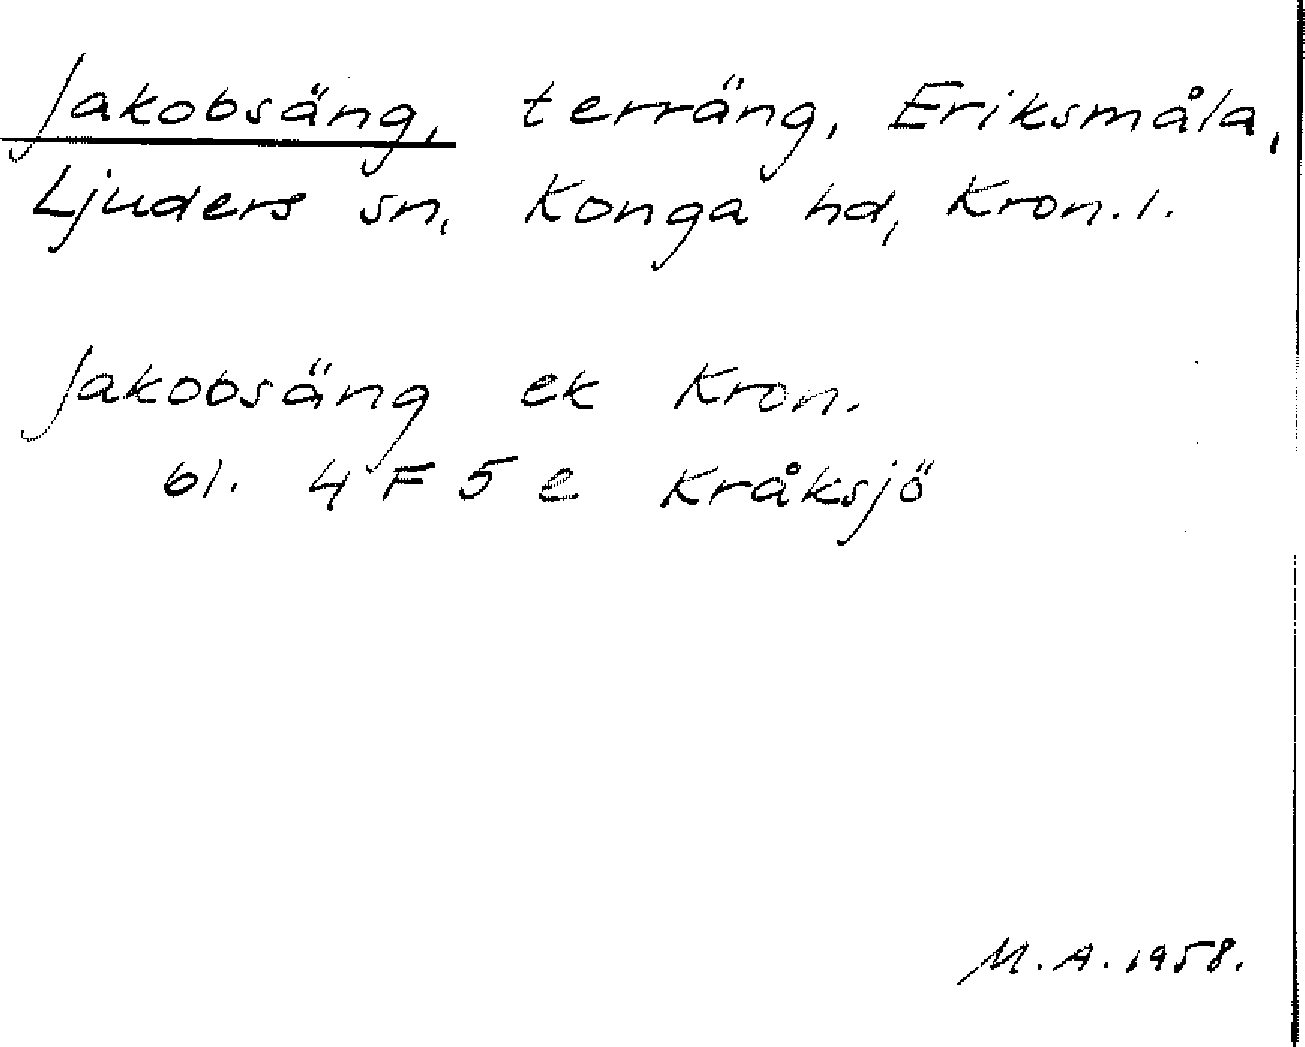 Jakobsäng, terräng, Eriksmåla,
Ljuders sn, Konga hd, Kron. l.
Jakobsäng ek Kron.
bl. 4 F 5 e Kråksjö
M. A. 1958.